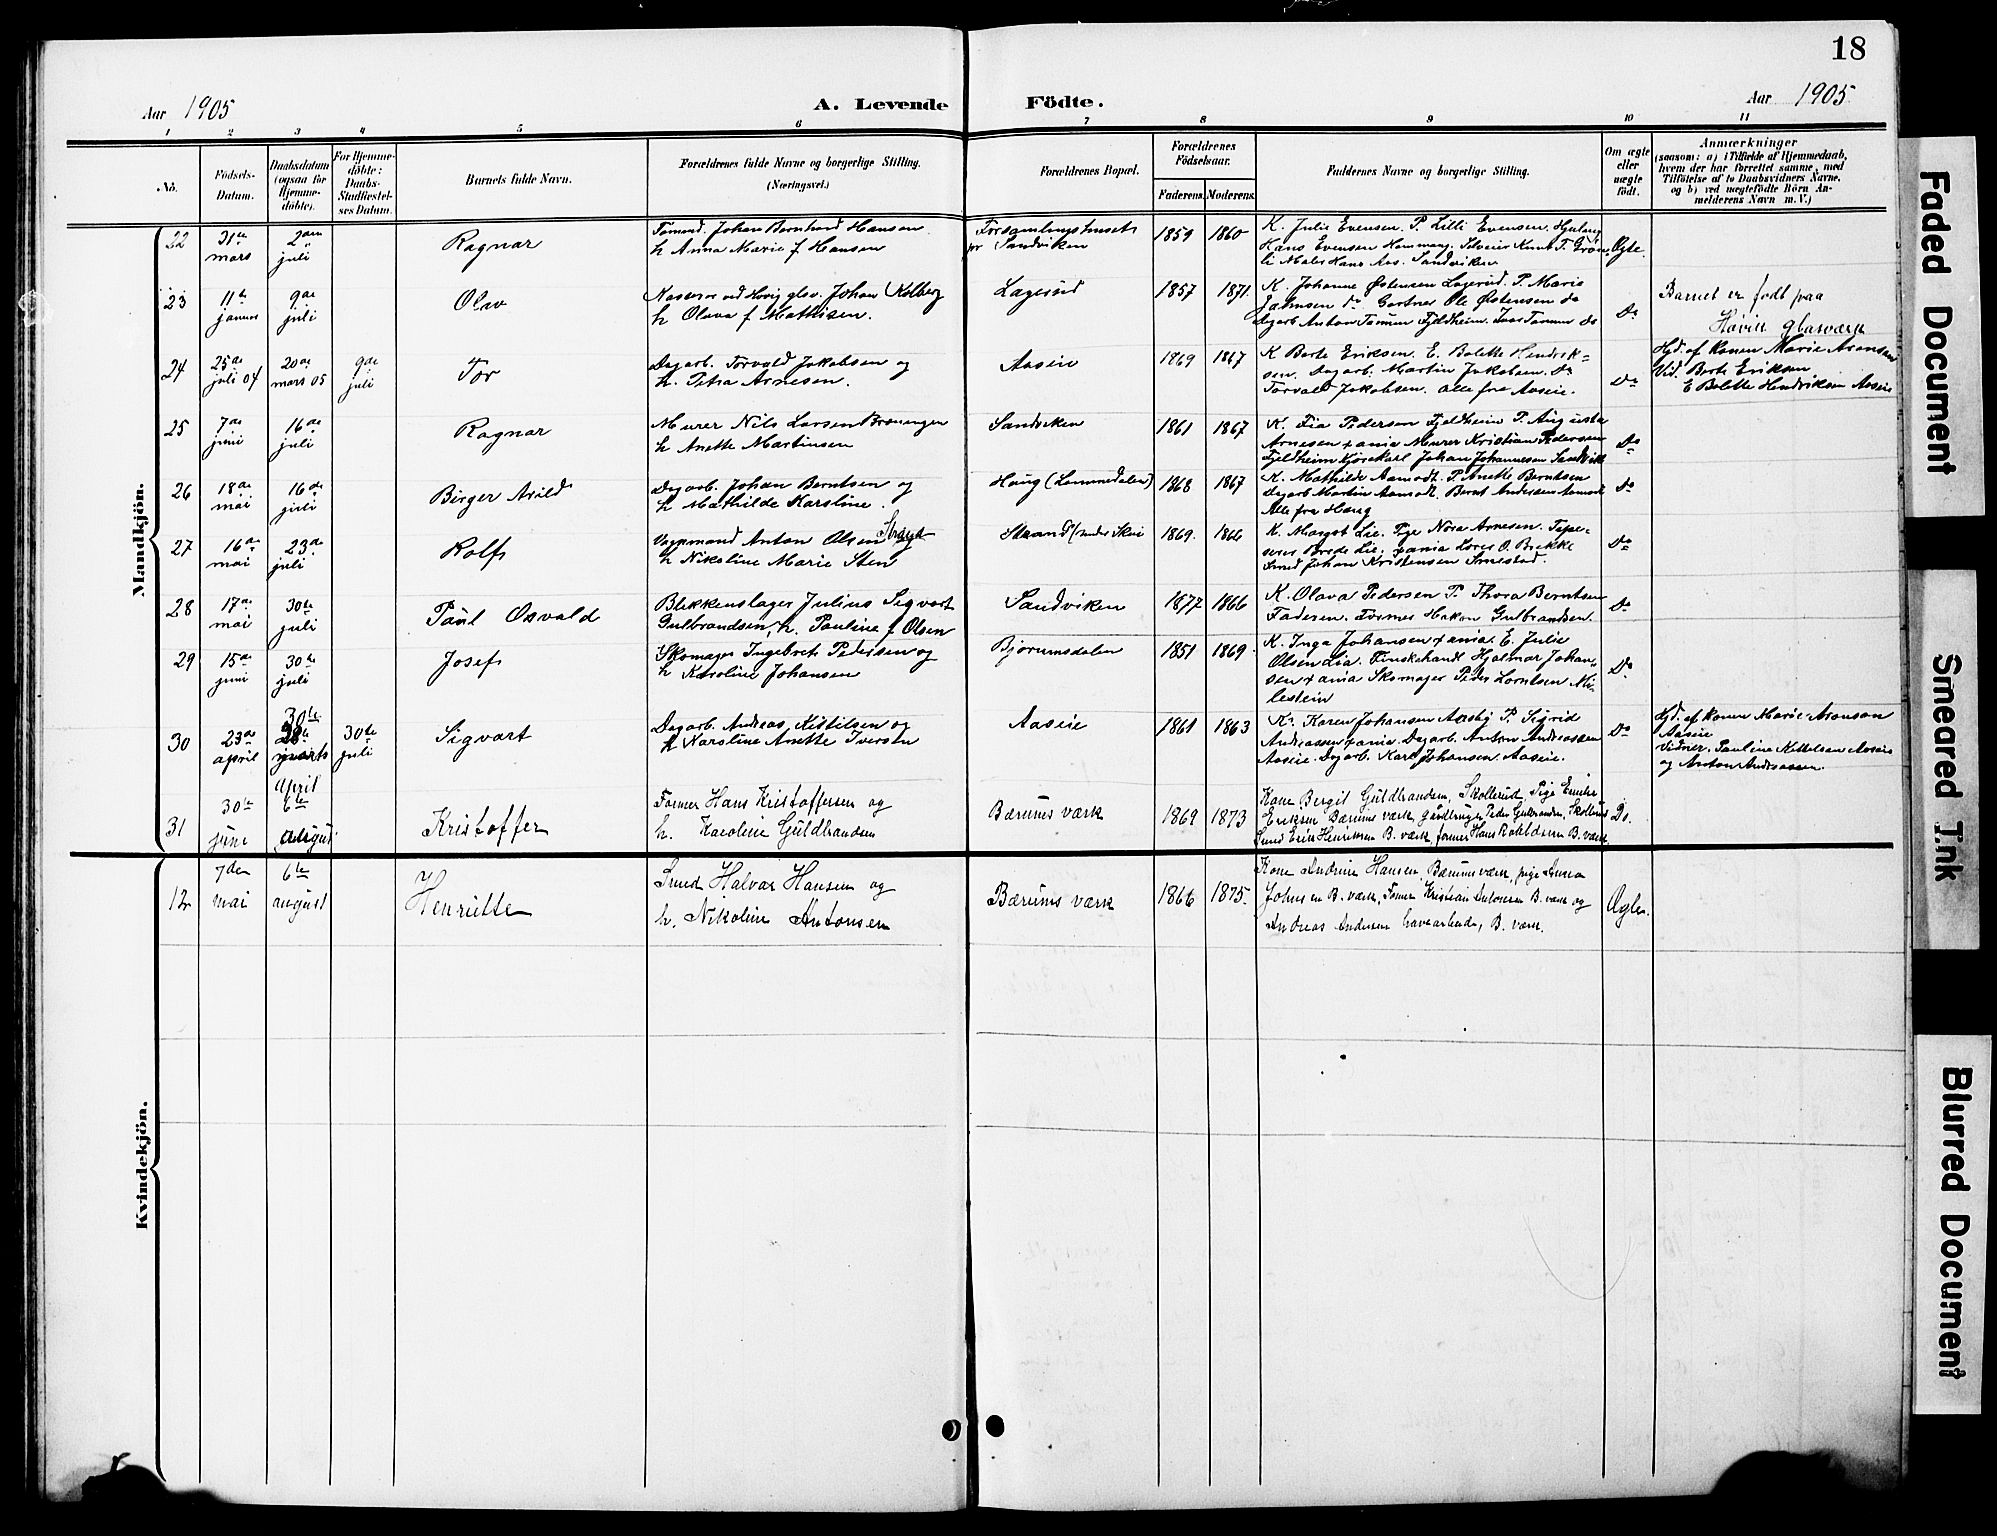 18
Aar 1905
A. Levende Födte.
Aar 1905
1 2 3 4 5 6 7 8 9 10 11
No.
Födsels-
Datum.
Daabsdatum
(ogsaa for
Hjemme-
döbte).
For Hjemme-
döbte:
Daabs-
Stadfæstel-
ses Datum.
Barnets fulde Navn.
Forældrenes fulde Navne og borgerlige Stilling.
(Næringsvei.)
Forældrenes Bopæl.
Forældrenes
Födselsaar.
Faderens Moderens
Faddernes Navne og borgerlige Stilling.
Om ægte
eller
uægte
födt.
Anmærkninger
(saasom: a) i Tilfælde af Hjemmedaab,
hvem der har forrettet samme, med
Tilföielse af to Daabsvidners Navne,
og b) ved uægtefödte Börn An-
melderens Navn m. V.)
Mandkjön.
22
31te
mars
2den
juli
Ragnar
Tömmd. Johan Bernhard Hansen
h Anna Marie f Hansen
Forsamlingshuset
pr Sandviken
1859 1860
K. Julie Evensen. P. Lilli Evensen.
Hans Evensen
Maler Hans Aas. Sandviken
Ægte.
23
11te
januar
9de
juli
Olav
ved Høvig glsv. Johan Kolberg
h Olava f Mathisen.
Lagerud
1857 1871.
K. Johanne Østensen Lagerud. P. Marie
do Gartner Ole Østensen do
Dagarb Anton Fjeldheim. do
Do
Barnet er født paa
Høvik glasværk
24
25de
juli 04
20de
mars 05
9de
juli
Tor
Dagarb. Torvald Jakobsen og
h. Petra Arnesen.
Aaseie
1869 1867
K Berte Eriksen. E. Bolette Hendrik-
sen. Dagarb. Martin Jakobsen. do
Torvald Jakobsen. Alle fra Aaseie.
Do
Hjd. af konen Marie Aronsen
Vid. Berte Eriksen
E Bolette Hendriksen Aaseie
25
7de
juni
16de
juli
Ragnar
Murer Nils Larsen
h Anette Martinsen
Sandviken
1861 1867
K. Fia Pedersen Fjeldheim P. Augusta
Arnesen xania Murer Kristian Pedersen
Fjeldheim Kjørekarl Johan Johannesen Sandvik
Do
26
18de
mai
16de
juli
Birger Arild
Dagarb. Johan Berntsen og
h Mathilde Karoline.
Haug (Lommedalen)
1868 1867
K. Mathilde Aamodt. P Anette Berntsen
Dagarb Martin Aamodt, Bernt Andersen Aamodt
Alle fra Haug
Do
27
16de
mai
23de
juli
Rolf
Vognmand Anton Olsen Strand
h Nikoline Marie Sten
Strand (under Skui
1869. 1866
K. Margit Lie. Pige Nora Arnesen. Tape-
serer Brede Lie. xania Lars O. Brekke
Smed Johan Kristensen Smestad.
Do
28
17de
mai
30te
juli
Paul Osvald
Blikkenslager Julius Sigvart
Gulbrandsen, h. Pauline f Olsen
Sandviken
1877 1866
K. Olava Pedersen P. Thora Berntsen
Faderen. Hakon Gulbrandsen.
Do
29
15de
juni
30te
juli
Josef
Skomager Ingebret Pedersen og
h Karoline Johansen
Bjørumsdalen
1851 1869.
K. Inga Johansen xania. E. Julie
Olsen Lia. Hjalmar Johan-
sen xania Skomager Peder Lorntsen Mi-
lestein
Do
30
23de
april
30te
April
30te
juli
Sigvart
Dagarb. Andreas Kittilsen og
h Karoline Anette Iversen
Aaseie
1861 1863
K. Karen Johansen Aasby P. Sigrid
Andreassen xania. Dagarb. Anton Andreassen
Aaseie. Dagarb. Karl Johansen. Aaseie.
Do
Hjd. af konen Marie Aronsen
Aaseie
Vidner. Pauline Kittelsen Aaseie
og Anton Andreassen
31
30te
juni
6te
august
Kristoffer
Former Hans Kristoffersen og
h. Karoline Guldbrandsen
Bærums værk
1869 1873
Kone Bergit Guldbrandsen, Skollerud, Pige Emilie
Eriksen Bærums værk, gaardbruger Peder Gulbrandsen, Skollerud
Smed Erik Henriksen B. værk, former Hans B. værk
Do.
Kvindekjön.
12
7den
mai
6te
august
Henriette
Smed Halvar Hansen og
h. Nikoline Antonsen
Bærums værk
1866 1875.
Kone Andrine Hansen, Bærums værk, pige Anna
Johnsen B. værk, Former Kristian Antonsen B. værk og
Andreas Andersen havearbeider, B. værk.
Ægte.
Faded Document
Smeared Ink
Blurred Document